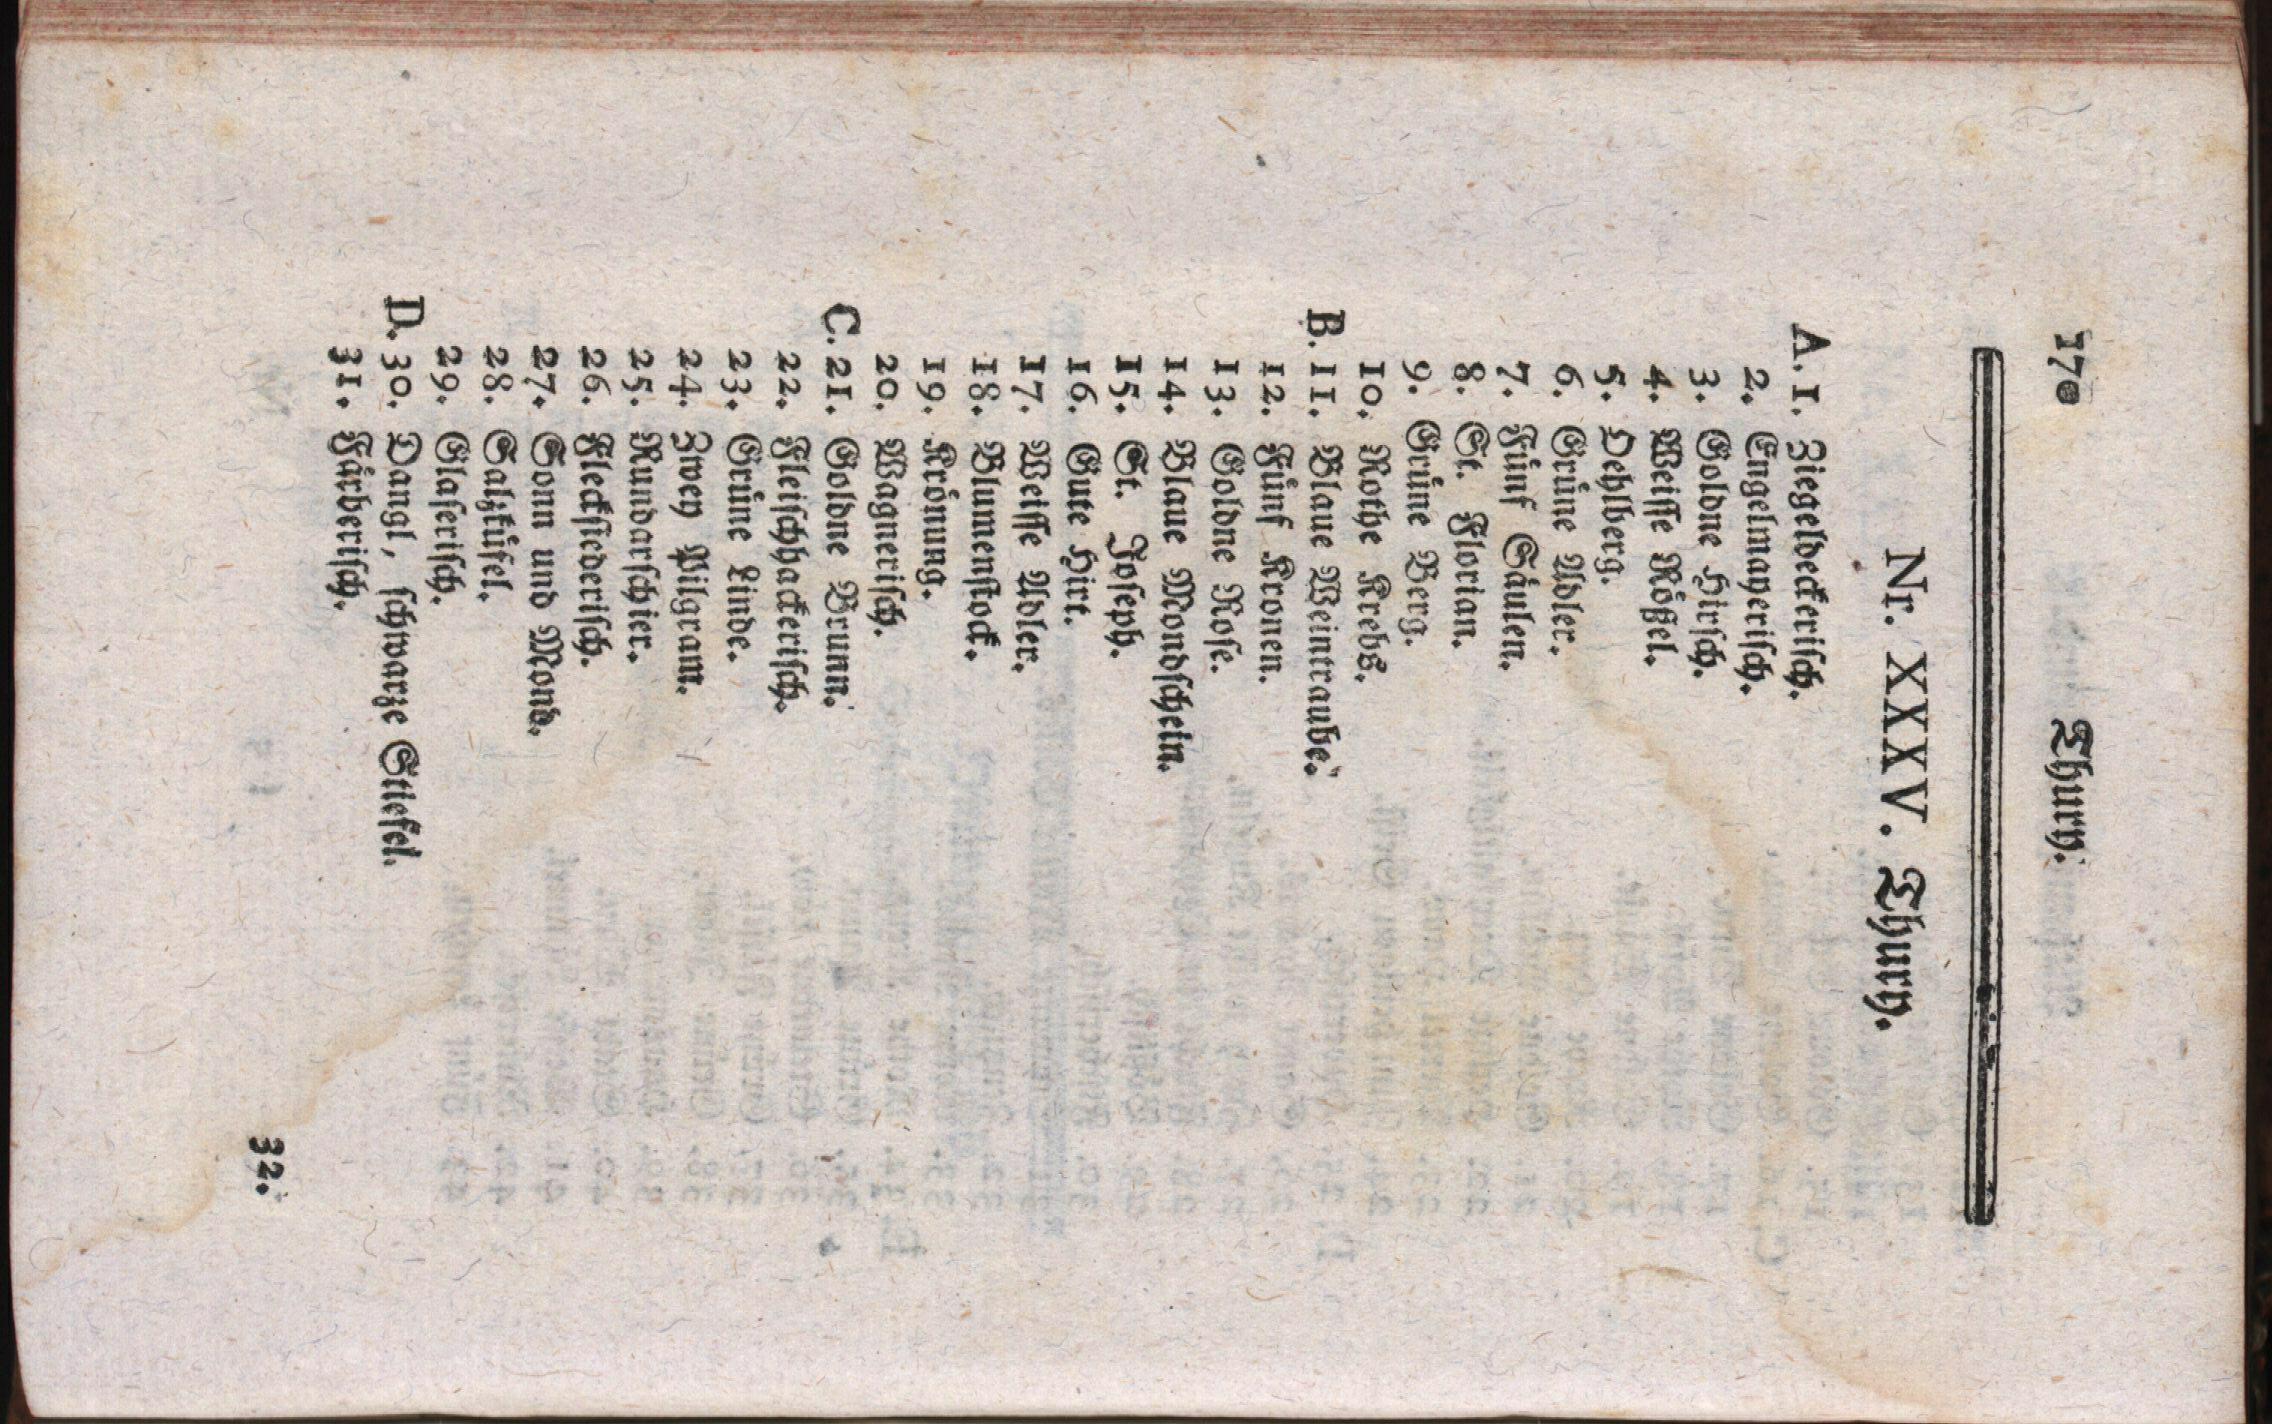 170 Thury.
Nr. XXXV. Thury.
A. 1. Ziegeldeckerisch.
2. Engelmayerisch.
3. Goldne Hirsch.
4. Weisse Rößel.
5. Oehlberg.
6. Grüne Adler.
7. Fünf Säulen.
8. St. Florian.
9. Grüne Berg.
10. Rothe Krebs.
B. 11. Blaue Weintraube.
12. Fünf Kronen.
13. Goldne Rose.
14. Blaue Mondschein.
15. St. Joseph.
16. Gute Hirt.
17. Weisse Adler.
18. Blumenstock.
19. Krönung.
20. Wagnerisch.
C. 21. Goldne Brunn.
22. Fleischhackerisch.
23. Grüne Linde.
24. Zwey Pilgram.
25. Rundarschier.
26. Flecksiederisch.
27. Sonn und Mond.
28. Salzküfel.
29. Glaserisch.
D. 30. Dangl, schwarze Stiefel.
31. Färberisch.
32.